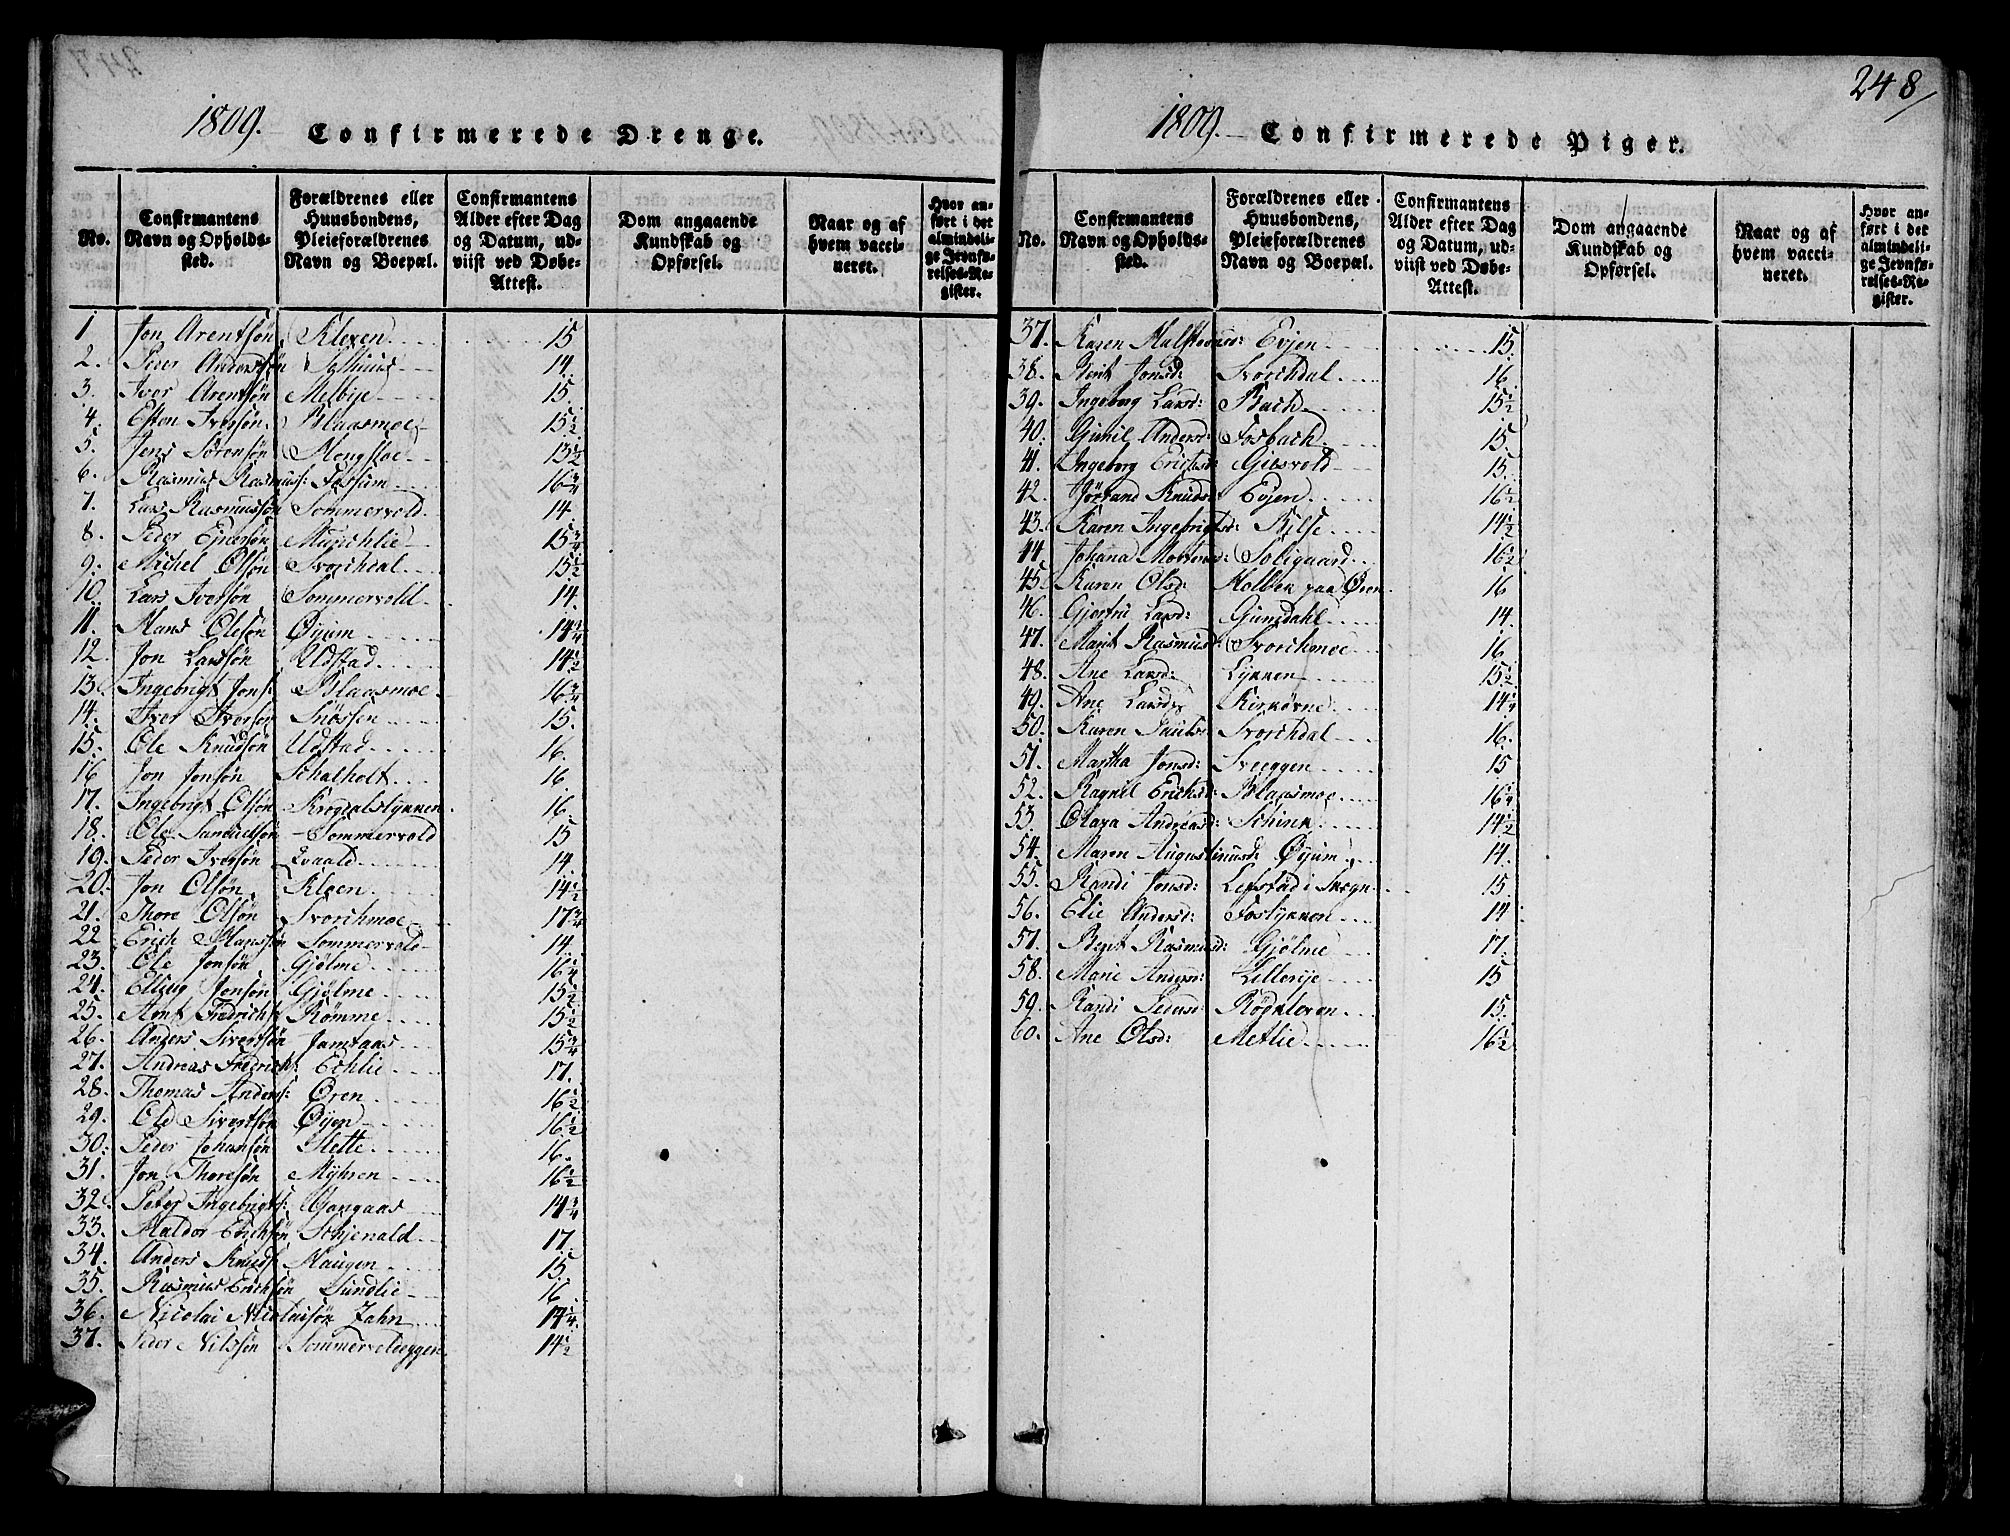 248
1809. Confirmerede Drenge.
No.
Confirmantens Navn og Opholds-sted.
Forældrenes eller Huusbondens, Pleieforældrenes Navn og Boepæl.
Confirmantens Alder efter Dag og Datum, ud-viist ved Døbe-Attest.
Dom angaaende Kundskab og Opførsel.
Naar og af hvem vacci-neret.
Hvor an-ført i det almindeli-ge Jevnfø-relses-Re-gister.
1 Jon Arentsøn Kleven 15
2. Peer Andersøn 14.
3. Iver Arentsøn Melbye 15.
4. Esten Iversøn Blaasmoe 15½
5. Jens Sörensøn Mengstoe 15½
6. Rasmus Rasmus: Fossum 16¾
7. Lars Rasmussøn Sommervold. 14.
8. Peder Munchlie 15¾
9. Michel Olsøn Svorchdal 15½
10. Lars Iversøn Sommervold. 14.
11. Hans Olesøn Øyum 14¾
12. Jon Larssøn Udstad 14½
13. Ingebrigt Jons: Blaasmoe 16¾
14. Iver Iversøn Snössen 15.
15. Ole Knudsøn Udstad 16.
16 Jon Jonsøn Schalholt 16
17. Ingebrigt Olsøn Krogdalslykken 16.
18. Ole Samuelsøn Sommervold 15
19. Peder Iversøn Qvaale 14.
20. Jon Olsøn Kloen 14½
21. Thore Olsøn Svorchmoe 17¾
22 Erich Hanssøn Sommervold 14.
23. Ole Jonsøn Gjølme 16¼
24. Elling Jonsøn Gjølme 15½
25. Arnt Fredrichs: Römme 15½
26. Anders Sivertsøn Jamtaas 15¾
27. Andreas Fredrich: Echlie 17.
28. Thomas Anders: Øren 16½
29. Ole Sivertsøn Øyen 16½
30. Peder Johansøn Slette 16.
31. Jon Thoresøn Myhren 16½
32. Peter Ingebrigts: Vongaas 14¾
33. Haldor Erichsøn Schjenald 17.
34. Anders Knuds: Haugen 15.
35. Rasmus Erichsøn Sundlie 16
36. Nicolai Nicolaisøn Jahn
37. Peder Nilssøn Sommervoldeggen 14½
1809. Confirmerede Piger.
No.
Confirmantens Navn og Opholds-sted.
Forældrenes eller Huusbondens, Pleieforældrenes Navn og Boepæl.
Confirmantens Alder efter Dag og Datum, ud-viist ved Døbe-Attest.
Dom angaaende Kundskab og Opførsel.
Naar og af hvem vacci-neret.
Hvor an-ført i det almindeli-ge Jevnfø-relses-Re-gister.
37. Karen Halstensd: Evjen 15.
38. Berit Jonsd: Svorchdal 16.
39. Ingeborg Larsd: Bach 15½
40. Gunil Andersd: Fosbach 15.
41. Ingeborg Erichsd: Gjesvold 15.
42. Jöran Knuds: Evjen 16½
43. Karen Ingebrigtsd: 14½
44. Johana Mortensd: Soligaard 16½
45. Karen Olsd: Holbek paa Øren 16
46. Gjertru Larsd: Gumdahl 14.
47. Marit Rasmusd: Svorchmoe 16
48. Ane Larsd: Lykken 15½
49. Ane Larsd: 14¼
50. Karen Pauls: Svorchdal 16.
51. Martha Jonsd: Sveeggen 15
52. Ragnil Erichsd: Blaasmoe 16¼
53. Olava Andreasd: Schinn 14½
54. Maren Augustinusd: Øyum 14.
55. Randi Jonsd: Lefstad i Skogn 15.
56. Elie Andersd: Foslykken 14
57. Berit Rasmusd: Gjölme 17.
58. Marie Andersd: Lillerye 15
59. Randi Pedersd: Rödkleven 15.
60. Ane Olsd: Metlie 16½